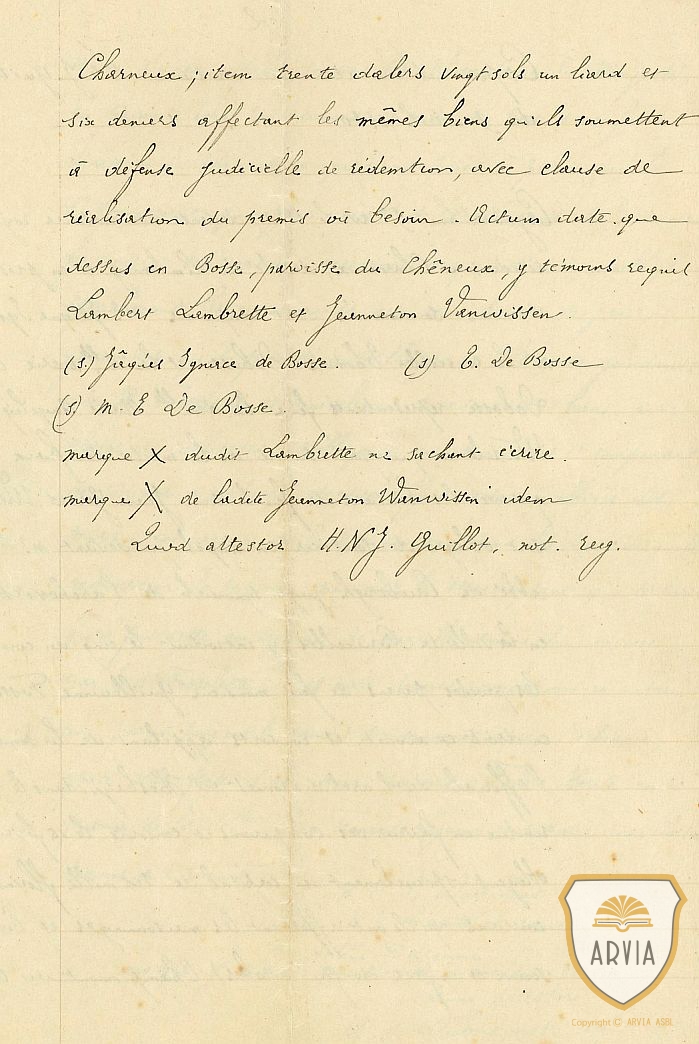 Charneux ; item trente dalers vingt sols un liard et
six deniers affectant les mêmes biens qu'ils soumettent
à défense judicielle de rédemtion, avec clause de
réalisation du premis où besoin. Actum date que
dessus en Bosse, paroisse du Chêneux, y témoins requis
Lambert Lambrette et Jeanneton Vanwissen.
(s.) Jâques Ignace de Bosse. (s) E. De Bosse
(s) M. E De Bosse.
marque X dudit Lambrette ne sachant écrire.
marque X de ladite Jeanneton Wanwissen idem
Quod attestor H.N.J. Guillot, not. req.
ARVIA
Copyright © ARVIA ASBL